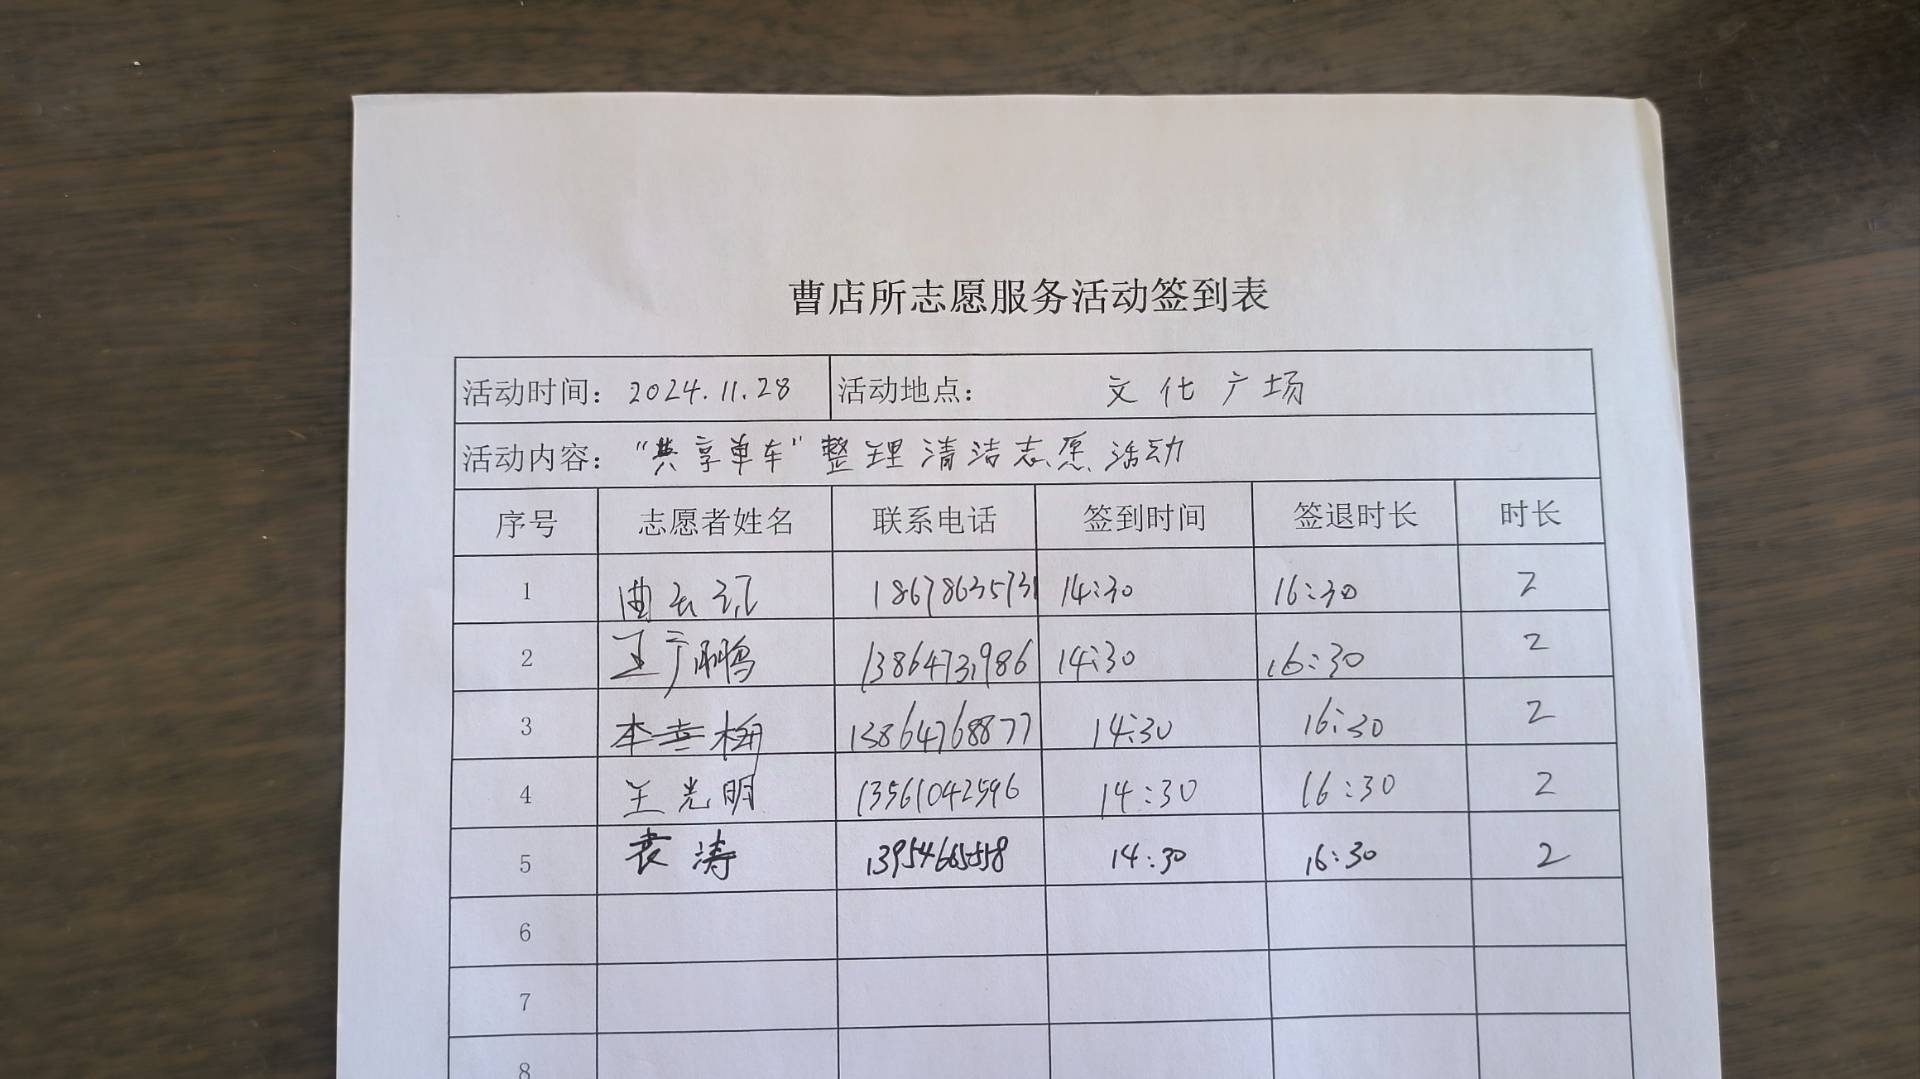 曹店所志愿服务活动签到表
活动时间：2024.11.28 活动地点： 文化广场
活动内容：“共享单车”整理清洁志愿活动
序号 志愿者姓名 联系电话 签到时间 签退时长 时长
1 曲 18678635731 14:30 16:30 2
2 王广鹏 13864731986 14:30 16:30 2
3 13864768877 14:30 16:30 2
4 王光明 13561042596 14:30 16:30 2
5 袁涛 14:30 16:30 2
6
7
8